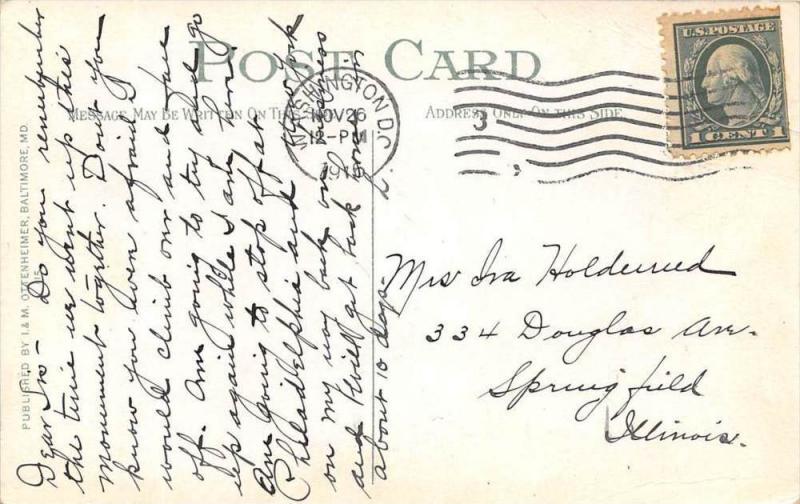 POST CARD
MESSAGE MAY BE WRITTEN ON THIS
ADDRESS ONLY ON THIS SIDE
WASHINGTON D.C.
NOV 26
12-PM
U.S. POSTAGE
1 CENT 1
PUBLISHED BY I. & M. OTTENHEIMER, BALTIMORE, MD.
Dear Iva - Do you remember
the time we went up this
monument together. Don't you
know you even afraid I
would climb over and fall
off. Am going to try and go
up again while I am here.
Am going to stop off at
Philadelphia and New York
on my way back on business
and I will get back home in
about 10 days.
Mrs Iva Holderread
334 Douglas Ave.
Springfield
Illinois.